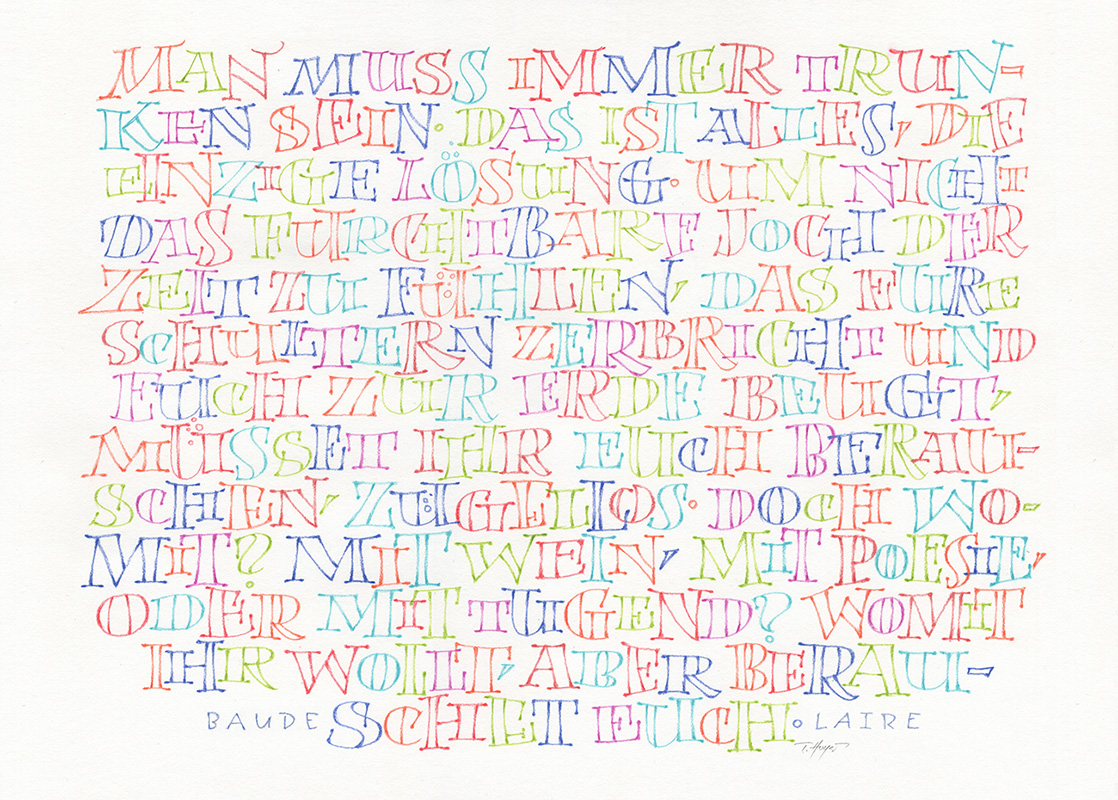 MAN MUSS IMMER TRUN-
KEN SEIN. DAS IST ALLES, DIE
EINZIGE LÖSUNG. UM NICHT
DAS FURCHTBARE JOCH DER
ZEIT ZU FÜHLEN, DAS EURE
SCHULTERN ZERBRICHT UND
EUCH ZUR ERDE BEUGT,
MÜSSET IHR EUCH BERAU-
SCHEN, ZÜGELLOS. DOCH WO-
MIT? MIT WEIN, MIT POESIE,
ODER MIT TUGEND? WOMIT
IHR WOLLT, ABER BERAU-
BAUDE SCHET EUCH. LAIRE